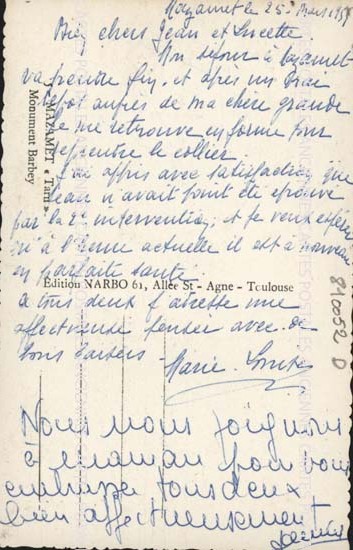 Mazamet le 25 Mars
Bien chers Jean et Lucette.
Mon séjour à Mazamet
va prendre fin, et après un vrai
repos auprès de ma chère grande
je me retrouve en forme pour
reprendre le collier.
J'ai appris avec satisfaction que
Jean n'avait point été éprouvé
par la 2e intervention; et je veux espérer
qu'à l'heure actuelle il est à nouveau
en parfaite santé.
à tous deux j'adresse une
affectueuse pensée avec de
bons baisers -
Marie-Louise
Nous nous joignons
à maman pour vous
embrasser tous deux
bien affectueusement
MAZAMET (Tarn)
Monument Barbey
Édition NARBO 61, Allée St - Agne - Toulouse
810052 D